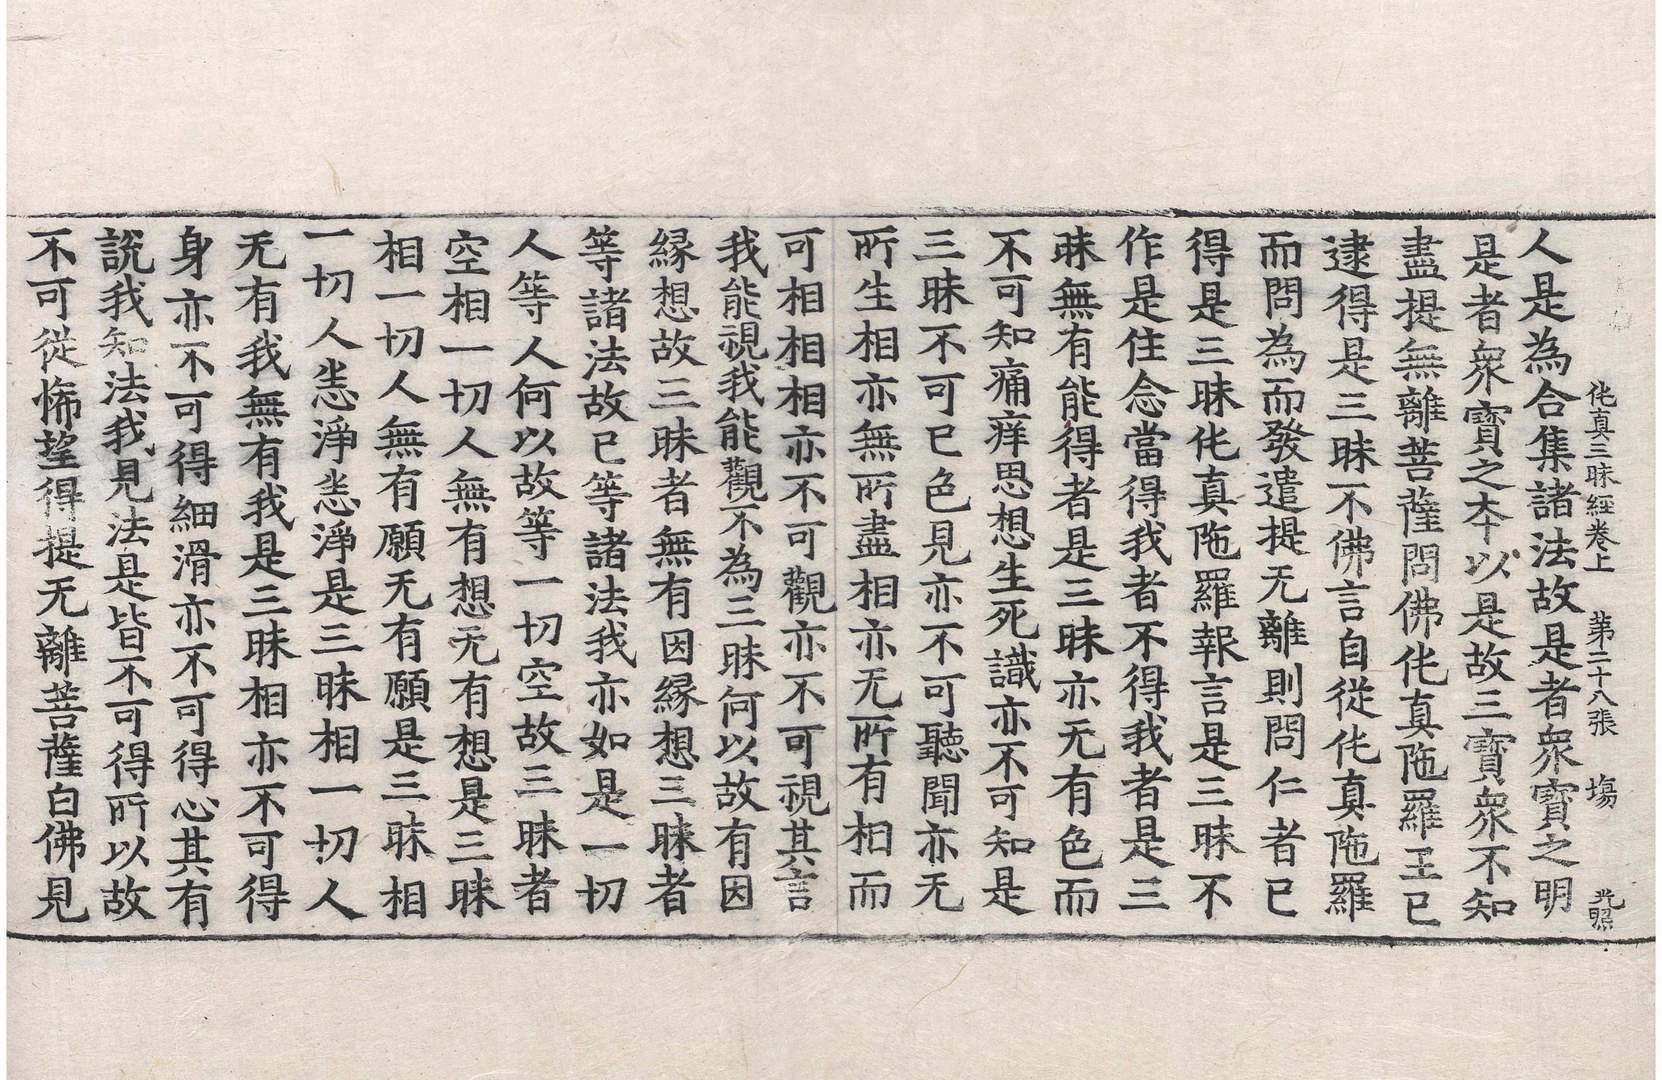 伅真三昧經卷上 第二十八張 塲 光照
人是為合集諸法故是者衆寶之明
是者衆寶之本以是故三寶衆不知
盡提無離菩薩問佛伅真陁羅王已
逮得是三昧不佛言自從伅真陁羅
而問為而發遣提无離則問仁者已
得是三昧伅真陁羅報言是三昧不
作是住念當得我者不得我者是三
昧無有能得者是三昧亦无有色而
不可知痛痒思想生死識亦不可知是
三昧不可已色見亦不可聽聞亦无
所生相亦無所盡相亦无所有相而
可相相相亦不可觀亦不可視其言
我能視我能觀不為三昧何以故有因
縁想故三昧者無有因縁想三昧者
等諸法故已等諸法我亦如是一切
人等人何以故等一切空故三昧者
空相一切人無有想无有想是三昧
相一切人無有願无有願是三昧相
一切人恙淨恙淨是三昧相一切人
无有我無有我是三昧相亦不可得
身亦不可得細滑亦不可得心其有
說我知法我見法是皆不可得所以故
不可從悕望得提无離菩薩白佛見